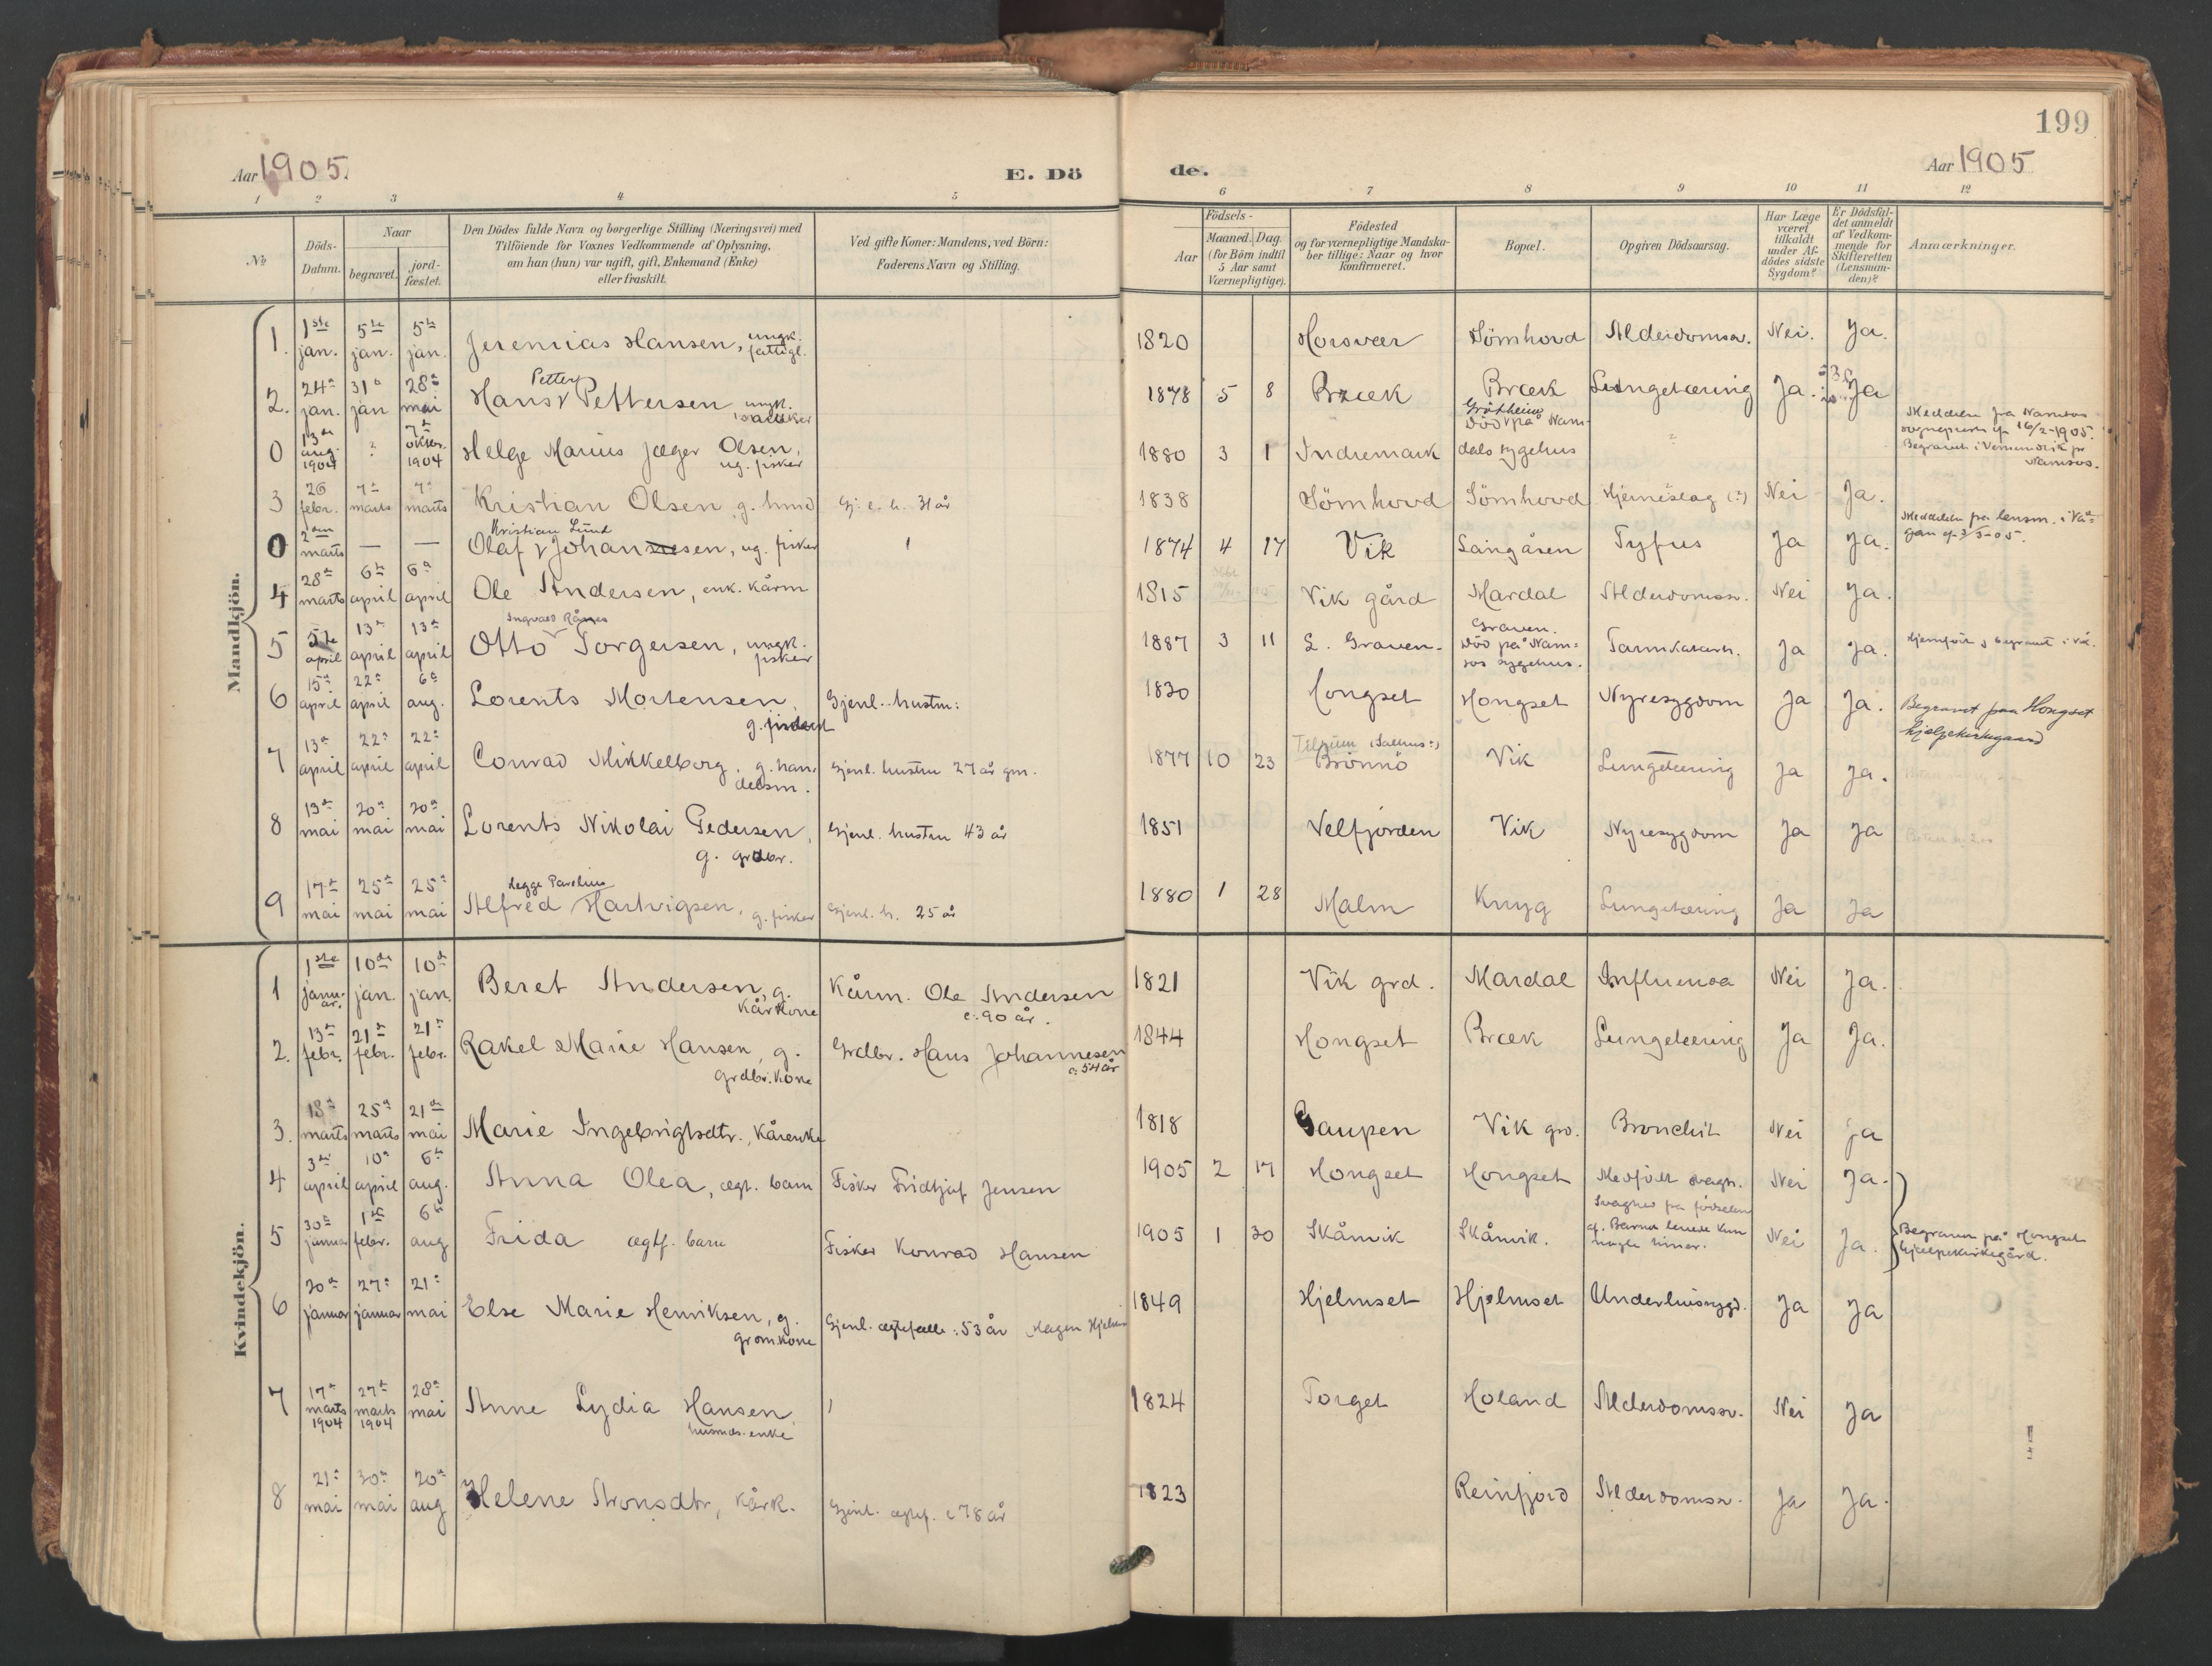 199
Aar 1905.
E. Dö
de.
Aar 1905
1 2 3 4 5 6 7 8 9 10 11 12
№
Döds-
Datum.
Naar
begravet.
jord-
fæstet.
Den Dödes fulde Navn og borgerlige Stilling (Næringsvei) med
Tilföiende for Voxnes Vedkommende af Oplysning,
om han (hun) var ugift, gift, Enkemand (Enke)
eller fraskilt.
Ved gifte Koner: Mandens, ved Börn:
Faderens Navn og Stilling.
Födsels-
Aar
Maaned. Dag.
(for Börn indtil
5 Aar samt
Værnepligtige).
Födested
og for værnepligtige Mandska-
ber tillige: Naar og hvor
konfirmeret.
Bopæl.
Opgiven Dödsaarsag.
Har Læge
været
tilkaldt
under Af-
dödes sidste
Sygdom?
Er Dödsfal-
det anmeldt
af Vedkom-
mende for
Skifteretten
(Lensman-
den)?
Anmærkninger.
Mandkjön.
1. 1ste jan. 5te jan. 5te jan. Jeremias Hansen, ungk. fattigl. 1820 Horsvær Sömhovd Alderdomssv. Nei. Ja.
2. 24de jan. 31te jan 28de mai Hans Petter Pettersen ungk. 1878 5 8 Bræk Bræk Lungetæring Ja. Ja
0 13de aug. 1904 ? 7de oktbr. 1904 Helge Marius Jæger Olsen, ug. fisker 1880 3 1 Indremark Död på Nam-
dals sygehus ?
Meddelt fra Namsos
sogneprest af 16/2-1905.
Namsos.
3 26 febr. 7de marts 7de marts Kristian Olsen, g. husmd Gj. e. h. 31 år 1838 Sömhovd Sömhovd Hjerneslag (?) Nei Ja.
0 2den marts — — Olaf Kristian Lund Johannesen, ug. fisker 1874 4 17 Vik Langåsen Tyfus Ja Ja.
Meddelelse fra lensm. i Vå-
gan af 3/3-05.
4 28de marts 6te april 6te april Ole Andersen, enk. kårm 1815 Vik gård Mardal Alderdomssv. Nei Ja.
5 5te april 13de april 13de april Otto Ingvald Torgersen, ungk. fisker 1887 3 11 L. Graven. Graven.
Död på Nam-
sos sygehus. Tarmkatarrh. Ja Ja. Hjemfört & begravet i Vik.
6 15de april 22de april 6te aug. Lorents Mortensen, g. Gjenl. hustru: 1830 Hongset Hongset Nyresygdom Ja Ja. Begravet paa Hongset
hjelpekirkegaard
7 13de april 22de april 22de april Conrad Mikkelborg, g. han-
delsm. Gjenl. hustru 27 år gm. 1877 10 23 Brönnö Vik Lungetæring Ja Ja.
8 13de mai 20de mai 20de mai Lorents Nikolai Pedersen, g. grdbr. Gjenl. hustru 43 år 1851 Velfjorden Vik Nyresygdom Ja Ja
9 17de mai 25de mai 25de mai Alfred Hegge Parelius Hartvigsen, g. fisker Gjenl. h. 25 år 1880 1 28 Malm Krug Lungetæring Ja Ja
Kvindekjön.
1 1ste janu-
ar. 10de jan. 10de jan. Beret Andersen, g. kårkone Kårm. Ole Andersen
c. 90 år. 1821 Vik grd. Mardal Influensa Nei Ja.
2. 13de febr. 21de febr. 21de febr. Rakel Marie Hansen, g. grdbr. kone Grdbr. Hans Johannesen
c. 54 år 1844 Hongset Bræk Lungetæring Ja Ja.
3. 18de marts 25de marts 21de mai Marie Ingebrigtsdtr., kårenke 1818 Gaupen Vik grd. Bronchit Nei Ja
4 3die april 10de april 6te aug. Anna Olea, ægt. barn Fisker Fridtjof Jensen 1905 2 17 Hongset Hongset Medfödt svagh. Nei Ja.
5 30te januar 1ste febr. 6te aug Frida ægtf. barn Fisker Konrad Hansen 1905 1 30 Skånvik Skånvik. Svaghed fra födselen
af. Barnet levede kun
nogle timer. Nei Ja. Begravet på Hongset
hjælpekirkegård.
6 20de januar 27de januar 21de mai Else Marie Henriksen, g. grdm.kone Gjenl. ægtefælle: 53 år Hagen 1849 Hjelmset Hjelmset Underlivssygd. Ja Ja
7 17de marts 1904 27de marts 1904 28de mai Anne Lydia Hansen, husmds. enke 1824 Torget Holand Alderdomssv. Nei Ja
8 21de mai 30te mai 20de aug Helene Aronsdtr, kårk. Gjenl. ægtef. c 78 år 1823 Reinfjord Alderdomssv. Ja Ja.